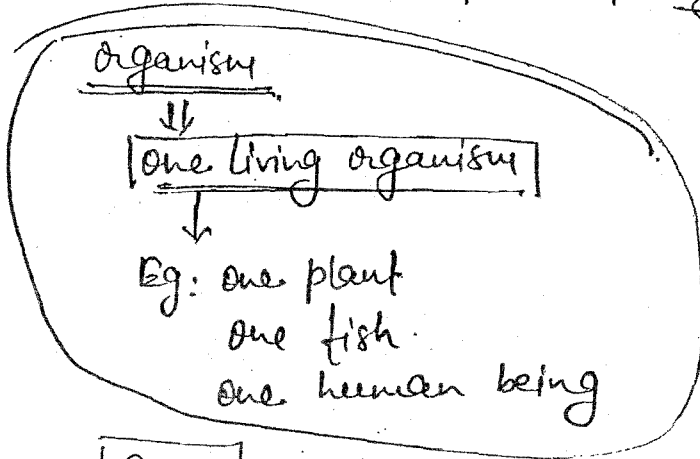 organism
one living organism
Eg: one plant
one fish.
one human being